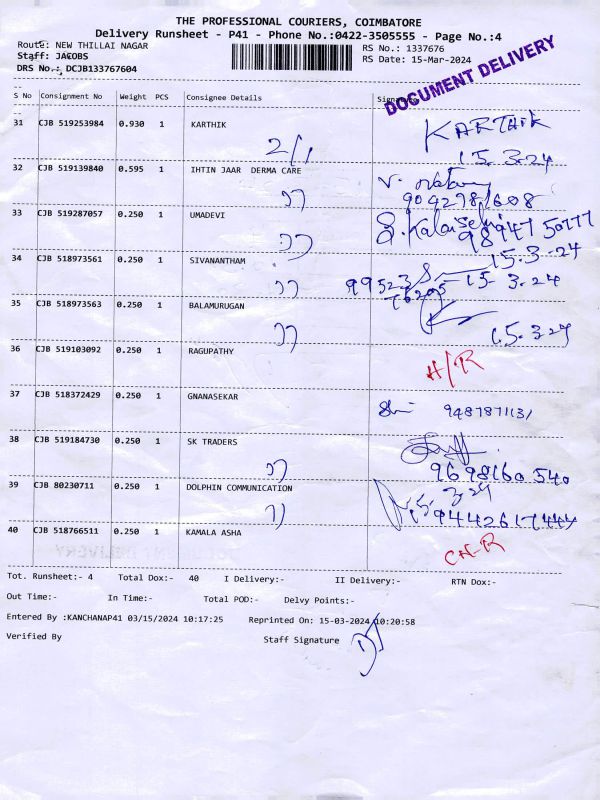 THE PROFESSIONAL COURIERS, COIMBATORE
Delivery Runsheet - P41 - Phone No.:0422-3505555 - Page No.:4
Route: NEW THILLAI NAGAR
RS No.: 1337676
Staff: JACOBS
RS Date: 15-Mar-2024
DRS No.: DCJB133767604
DOCUMENT DELIVERY
S No Consignment No Weight PCS Consignee Details
31 CJB 519253984 0.930 1 KARTHIK KARTHIK
15.3.24
32 CJB 519139840 0.595 1 IHTIN JAAR DERMA CARE
9042981608
33 CJB 519287057 0.250 1 UMADEVI
15.3-24
34 CJB 518973561 0.250 1 SIVANANTHAM
15-3.24
35 CJB 518973563 0.250 1 BALAMURUGAN
15.3.24
36 CJB 519103092 0.250 1 RAGUPATHY H/R
37 CJB 518372429 0.250 1 GNANASEKAR
9487871131
38 CJB 519184730 0.250 1 SK TRADERS
9698160540
39 CJB 80230711 0.250 1 DOLPHIN COMMUNICATION
40 CJB 518766511 0.250 1 KAMALA ASHA
Tot. Runsheet:- 4 Total Dox:- 40 I Delivery:- II Delivery:- RTN Dox:-
Out Time:- In Time:- Total POD:- Delvy Points:-
Entered By :KANCHANAP41 03/15/2024 10:17:25 Reprinted On: 15-03-2024 10:20:58
Verified By Staff Signature